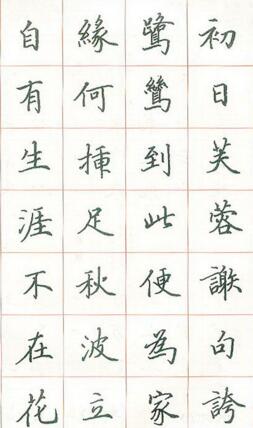 初日芙蓉謝句誇
鷺鶿到此便為家
緣何插足秋波立
自有生涯不在花